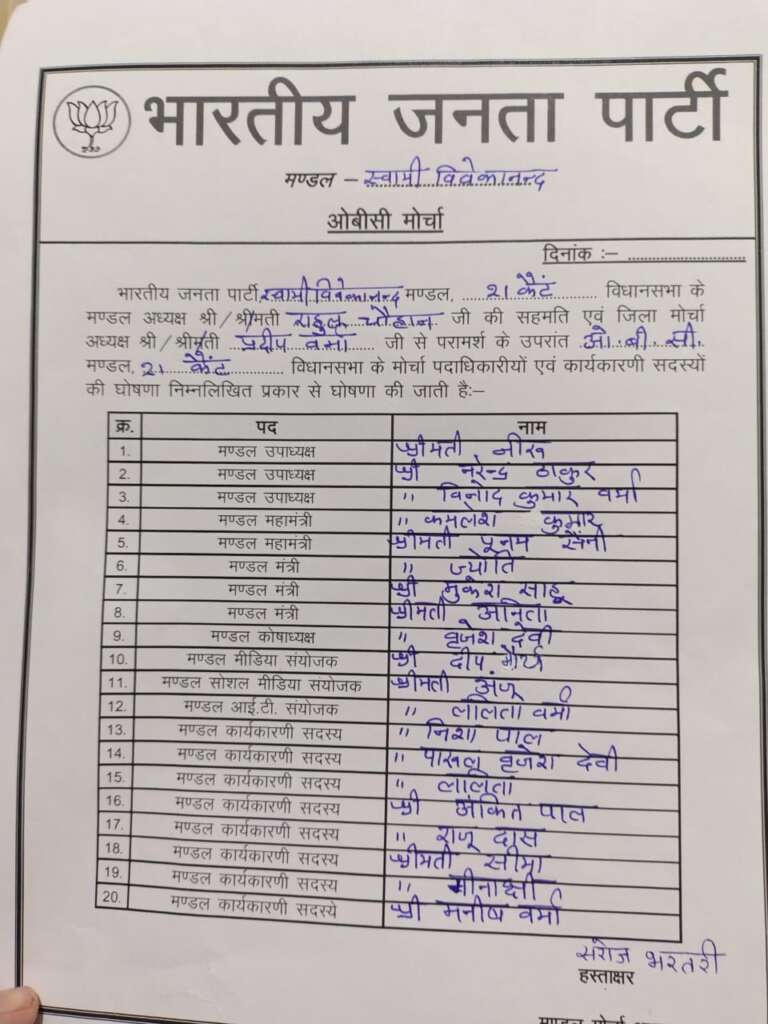 भारतीय जनता पार्टी
मण्डल – स्वामी विवेकानन्द
ओबीसी मोर्चा
दिनांक :– ..............................
भारतीय जनता पार्टी, स्वामी विवेकानन्द मण्डल, 21 कैंट विधानसभा के
मण्डल अध्यक्ष श्री/श्रीमती राहुल चौहान जी की सहमति एवं जिला मोर्चा
अध्यक्ष श्री/श्रीमती प्रदीप वर्मा जी से परामर्श के उपरांत ओ.बी.सी.
मण्डल, 21 कैंट विधानसभा के मोर्चा पदाधिकारीयों एवं कार्यकारणी सदस्यों
की घोषणा निम्नलिखित प्रकार से घोषणा की जाती है:–
क्र. पद नाम
1. मण्डल उपाध्यक्ष श्रीमती नीरू
2. मण्डल उपाध्यक्ष श्री नरेन्द्र ठाकुर
3. मण्डल उपाध्यक्ष " विनोद कुमार वर्मा
4. मण्डल महामंत्री " कमलेश कुमार
5. मण्डल महामंत्री श्रीमती पूनम सैनी
6. मण्डल मंत्री " ज्योति
7. मण्डल मंत्री श्री मुकेश साहू
8. मण्डल मंत्री श्रीमती अनिता
9. मण्डल कोषाध्यक्ष " वृजेश देवी
10. मण्डल मीडिया संयोजक श्री दीप मौर्य
11. मण्डल सोशल मीडिया संयोजक श्रीमती अंजू
12. मण्डल आई.टी. संयोजक " ललिता वर्मा
13. मण्डल कार्यकारणी सदस्य " निशा पाल
14. मण्डल कार्यकारणी सदस्य " वृजेश देवी
15. मण्डल कार्यकारणी सदस्य " ललिता
16. मण्डल कार्यकारणी सदस्य श्री अंकित पाल
17. मण्डल कार्यकारणी सदस्य " राजू दास
18. मण्डल कार्यकारणी सदस्य श्रीमती सीमा
19. मण्डल कार्यकारणी सदस्य " मीनाक्षी
20. मण्डल कार्यकारणी सदस्ये श्री मनीष वर्मा
सरोज भरतरी
हस्ताक्षर